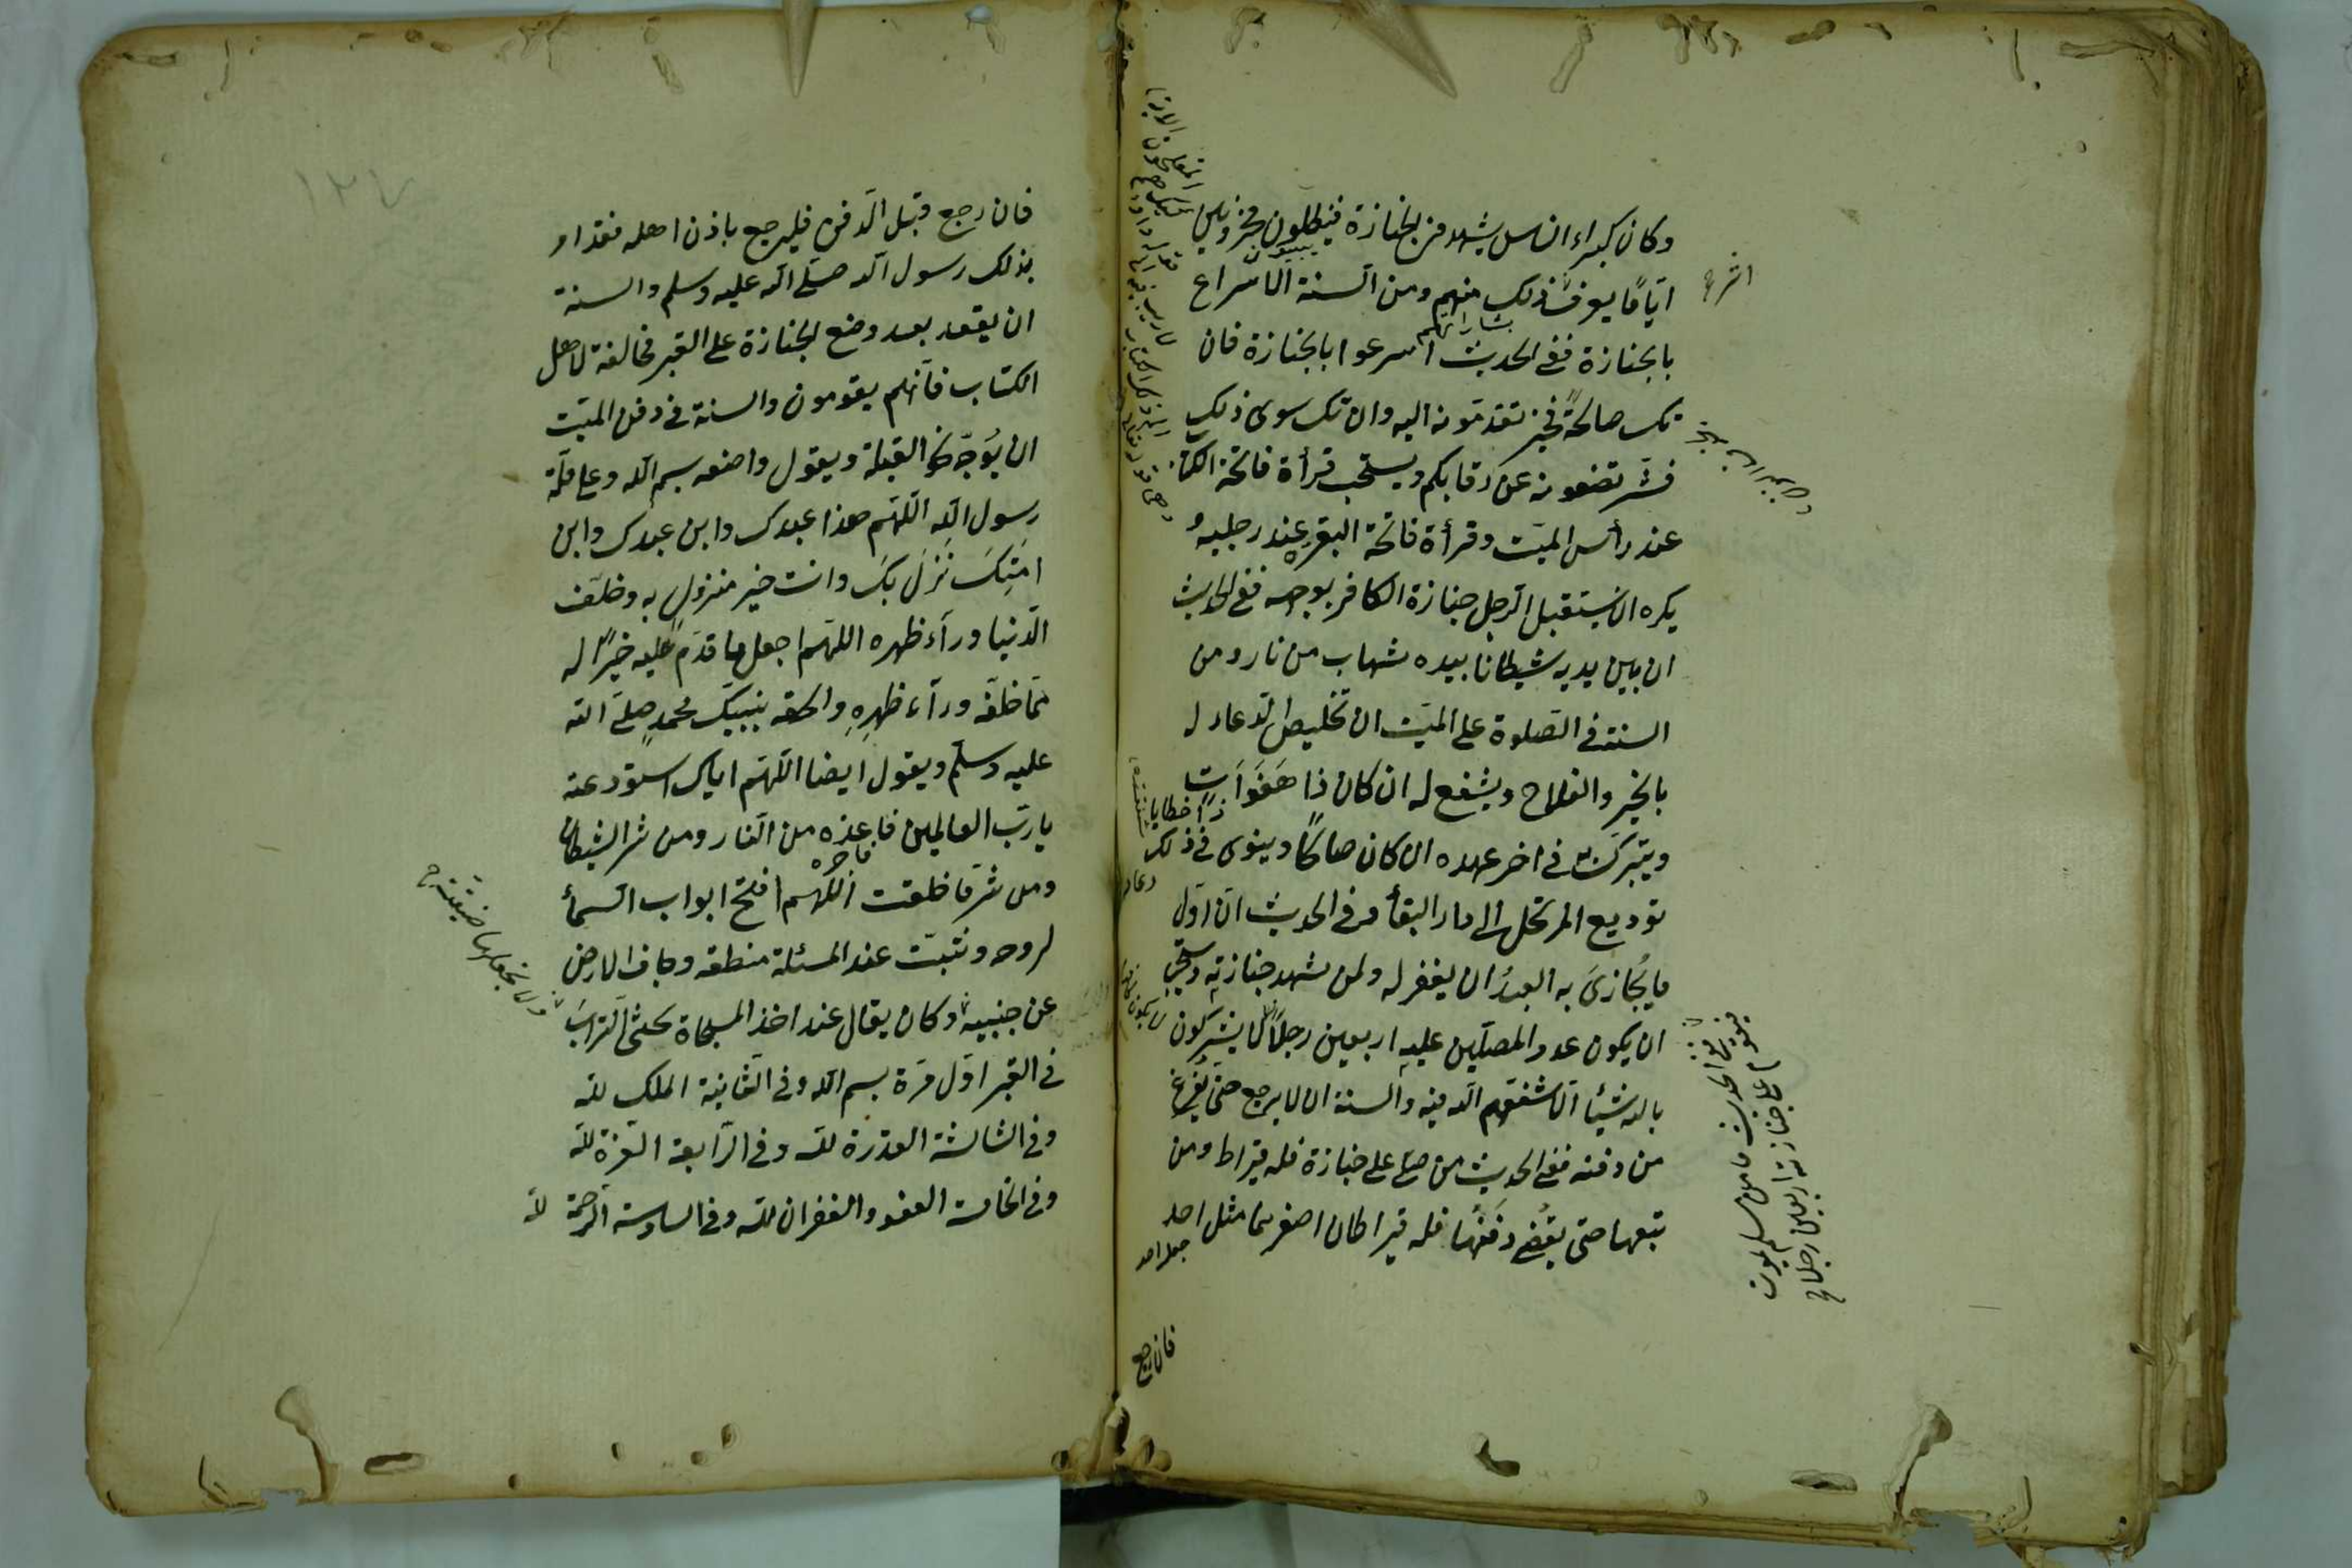 وكان كبراء الناس يشهدون الجنازة فيظلون محزونين
ايّامًا يعرف ذلك منهم ومن السنة الاسراع
بالجنازة ففي الحديث اسرعوا بالجنازة فان
تك صالحةً فخير تقدمونه اليه وان تك سوى ذلك
فشر تضعونه عن رقابكم ويستحب قرأة فاتحة الكتاب
عند رأس الميّت وقرأة فاتحة البقرة عند رجليه و
يكره ان يستقبل الرجل جنازة الكافر بوجهه ففي الحديث
ان بين يديه شيطانا بيده شهاب من نار ومن
السنة في الصلوة على الميّت ان تخليص الدعاء له
بالخير والفلاح ويشفع له ان كان ذا هَفَوَاتٍ
ذا خطايا
ويتبرك به في اخر عهده ان كان صالحًا وينوى في ذلك
توديع المرتحل الى دار البقأ وفي الحديث انّ اوّل
ما يُجازىَ به العبدُ ان يغفر له ولمن شهد جنازته ويستحب
ان يكون عدد المصلّين عليهِ اربعين رجلًا لا يشركون
بالله شيئا الّا شفعهم الله فيه والسنة ان لا يرجع حتى يفرغ
من دفنه ففي الحديث من صلى على جنازة فله قيراط ومن
تبعها حتى يقضى دفنها فله قيراطان اصغرهما مثل احد
جبل احد
فان رجع
فان رجع قبل الدفن فليرجع باذن اهله فقد امر
بذلك رسول الله صلى الله عليه وسلم والسنة
ان يقعد بعد وضع الجنازة على القبر مخالفة لاهل
الكتاب فانّهم يقومون والسنة في دفن الميّت
ان يُوَجّه نحو القبلة ويقول واضعه بسم الله وعلى ملّة
رسول الله اللّهم هذا عبدك وابن عبدك وابن
امتِكَ نَزَلَ بكَ وانت خير منزولٍ به وخلّف
الدنيا ورآء ظهره اللهم اجعل ما قدّم عليه خيرًا له
ممّا خلّفه ورآء ظهرِهِ والحقه بنبيّك محمدٍ صلى الله
عليه وسلم ويقول ايضا اللهم اياك استودعته
يا ربّ العالمين فاعذه من النار ومن شر الشيطان
فاجره
ومن شر ما خلقت اللهم افتح ابواب السمأ
لروحه وثبّت عند المسئلة منطقه وجاف الارض
عن جنبيه وكان يقال عند اخذ المسحاة يحثى الترابَ
في القبر اوّل مرة بسم الله وفي الثانية الملك لله
وفي الثالثة القدرة لله وفي الرابعة العزة لله
وفي الخامسة العفو والغفران لله وفي السادسة الرحمة لله
ولا تجعلها ضيقة
ففي الحديث ما من مسلم يموت
فيقوم على جنازته اربعين رجلا
١٢٧